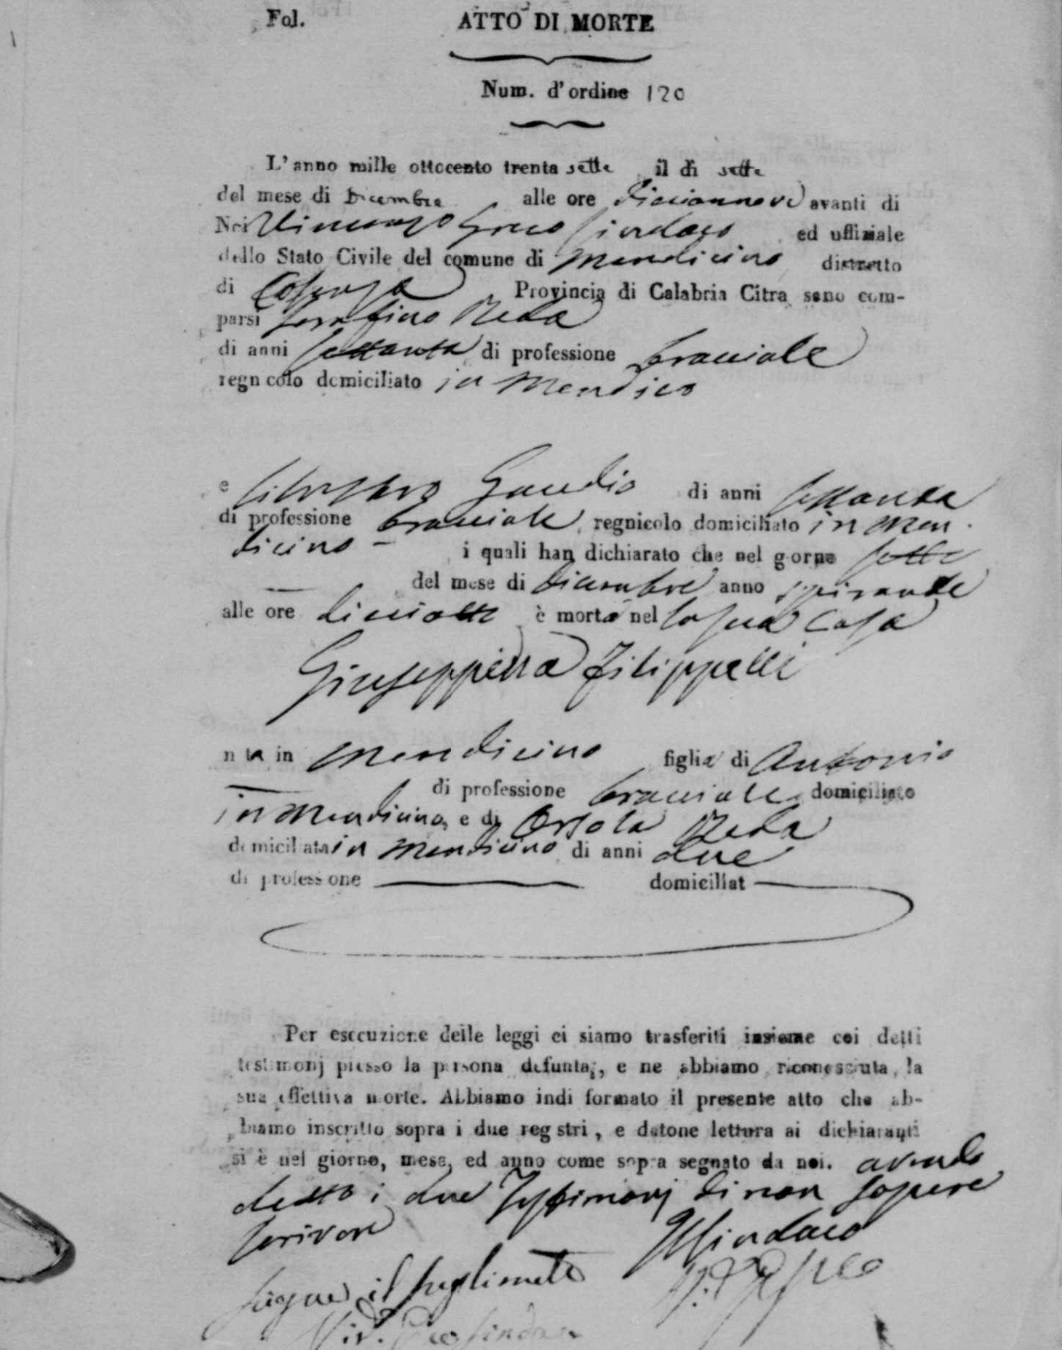 Fol. ATTO DI MORTE
Num. d'ordine 120
L'anno mille ottocento trenta sette il di sette
del mese di Dicembre alle ore diciannove avanti di
Noi Vincenzo Greco Sindaco ed uffiziale
dello Stato Civile del comune di Mendicino distretto
di Cosenza Provincia di Calabria Citra sono com-
parsi Serafino Reda
di anni settanta di professione bracciale
regnicolo domiciliato in Mendico
e Silvestro Gaudio di anni settanta
di professione bracciale regnicolo domiciliato in Men-
dicino - i quali han dichiarato che nel giorno sette
del mese di Dicembre anno spirante
alle ore dieciotto è morta nel la sua casa
Giuseppina Filippelli
nata in Mendicino figlia di Antonio
di professione bracciale domiciliato
in Mendicino, e di Orsola Reda
domiciliata in Mendicino di anni due
di professione domiciliat
Per esecuzione delle leggi ci siamo trasferiti insieme coi detti
testimonj presso la persona defunta, e ne abbiamo riconosciuta la
sua effettiva morte. Abbiamo indi formato il presente atto che ab-
biamo inscritto sopra i due registri, e datone lettura ai dichiaranti
si è nel giorno, mese, ed anno come sopra segnato da noi. avendo
detto i due Testimonj di non sapere
scrivere
Il Sindaco
V. Greco
Segue il supplimento